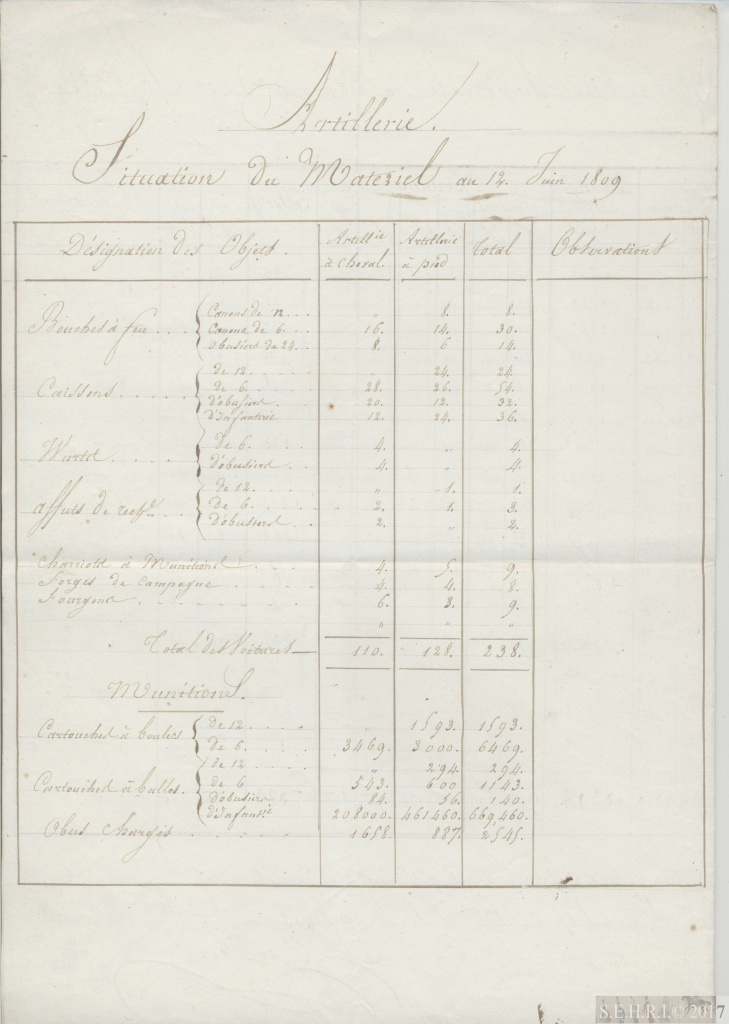 Artillerie.
Situation du Materiel au 12. Juin 1809
Désignation des Objets. Artillie à Cheval. Artillerie à pied Total Observations
Bouches à feu . . . Canons de 12 . . . " 8. 8.
Canons de 6 . . . 16. 14. 30.
Obusiers de 24 . . 8. 6 14.
Caissons . . . . de 12 . . . . " 24. 24
de 6 . . . . 28. 26. 54.
d'obusiers . . 20. 12. 32.
d'Infanterie 12. 24. 36.
Wurts . . . . de 6 . . . . 4. " 4.
d'obusiers . . 4. " 4.
affuts de rechge . . de 12 . . . . " 1. 1.
de 6 . . . . 2. 1. 3.
d'obusiers . . 2. " 2.
Charriots à Munitions . . . . 4. 5. 9.
Forges de Campagne . . . . 4. 4. 8.
Fourgons . . . . 6. 3. 9.
" " "
Total des Voitures 110. 128. 238.
Munitions.
Cartouches à boulets de 12 . . . . " 1593. 1593.
de 6 . . . . 3469. 3000. 6469.
Cartouches à balles. de 12 . . . . " 294. 294.
de 6 . . . . 543. 600 1143.
d'obusiers 84. 56. 140.
d'Infantie 208000. 461460. 669,460.
Obus chargés . . . . 1658. 887. 2545.
S.E.H.R.I.© 2017